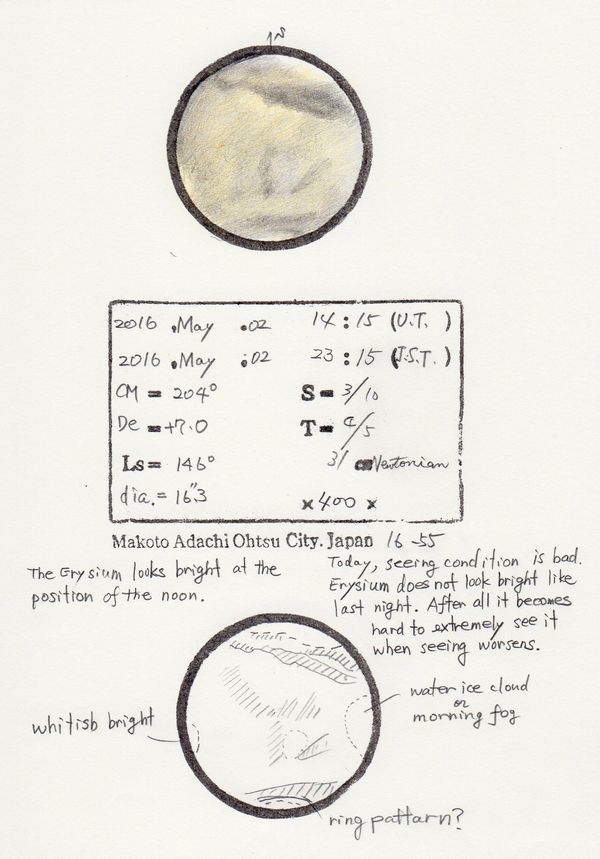 S
2016 , May . 02 14 : 15 (U.T. )
2016 , May : 02 23 : 15 (J.S.T. )
CM = 204° S = 3/10
De = +7.0 T = 4/5
Ls = 146° 31 cm Newtonian
dia. = 16"3 × 400 ×
Makoto Adachi Ohtsu City. Japan 16-55
The Erysium looks bright at the
position of the noon.
Today, seeing condition is bad.
Erysium does not look bright like
last night. After all it becomes
hard to extremely see it
when seeing worsens.
whitish bright
water ice cloud
or
morning fog
ring pattarn?